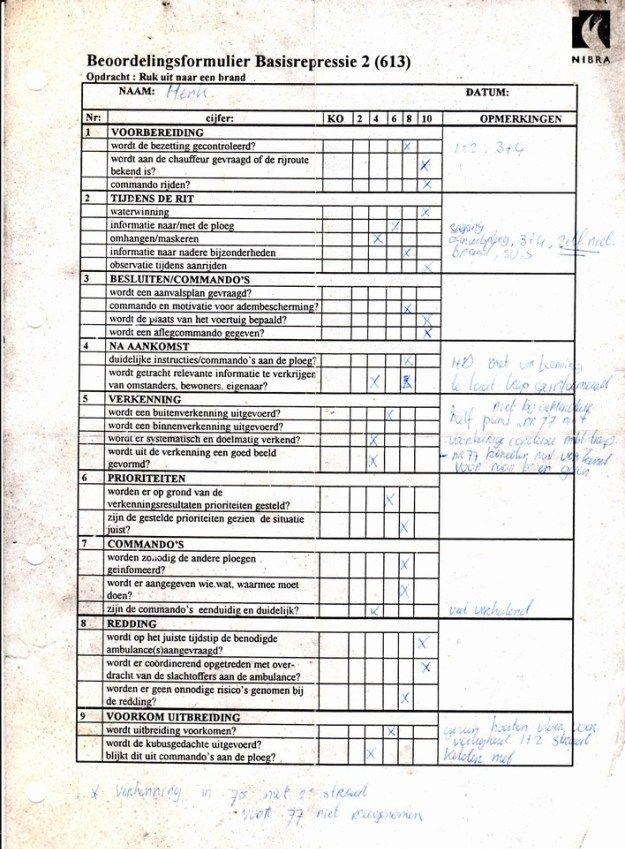 NIBRA
Beoordelingsformulier Basisrepressie 2 (613)
Opdracht : Ruk uit naar een brand
NAAM: Henk DATUM:
Nr: cijfer: KO 2 4 6 8 10 OPMERKINGEN
1 VOORBEREIDING
wordt de bezetting gecontroleerd? x 1+2, 3+4
wordt aan de chauffeur gevraagd of de rijroute
bekend is? x
commando rijden? x
2 TIJDENS DE RIT
waterwinning x
informatie naar/met de ploeg x
omhangen/maskeren x 3+4, zelf niet
informatie naar nadere bijzonderheden x
observatie tijdens aanrijden x
3 BESLUITEN/COMMANDO'S
wordt een aanvalsplan gevraagd?
commando en motivatie voor adembescherming? x
wordt de plaats van het voertuig bepaald? x
wordt een aflegcommando gegeven? x
4 NA AANKOMST
duidelijke instructies/commando's aan de ploeg? x
wordt getracht relevante informatie te verkrijgen te laat
van omstanders, bewoners, eigenaar? x x
5 VERKENNING niet bij
wordt een buitenverkenning uitgevoerd? x half pand
wordt een binnenverkenning uitgevoerd?
wordt er systematisch en doelmatig verkend? x
wordt uit de verkenning een goed beeld
gevormd? x
6 PRIORITEITEN
worden er op grond van de
verkenningsresultaten prioriteiten gesteld? x
zijn de gestelde prioriteiten gezien de situatie
juist? x
7 COMMANDO'S
worden zonodig de andere ploegen
geinfomeerd? x
wordt er aangegeven wie.wat, waarmee moet
doen? x
zijn de commando's eenduidig en duidelijk? x veel verhalend
8 REDDING
wordt op het juiste tijdstip de benodigde
ambulance(s)aangevraagd? x
wordt er coördinerend opgetreden met over-
dracht van de slachtoffers aan de ambulance? x
worden er geen onnodige risico's genomen bij
de redding? x
9 VOORKOM UITBREIDING
wordt uitbreiding voorkomen? x
wordt de kubusgedachte uitgevoerd? 1+2
blijkt dit uit commando's aan de ploeg? x Kelder
x Verkenning in 75 niet
77 niet meegenomen